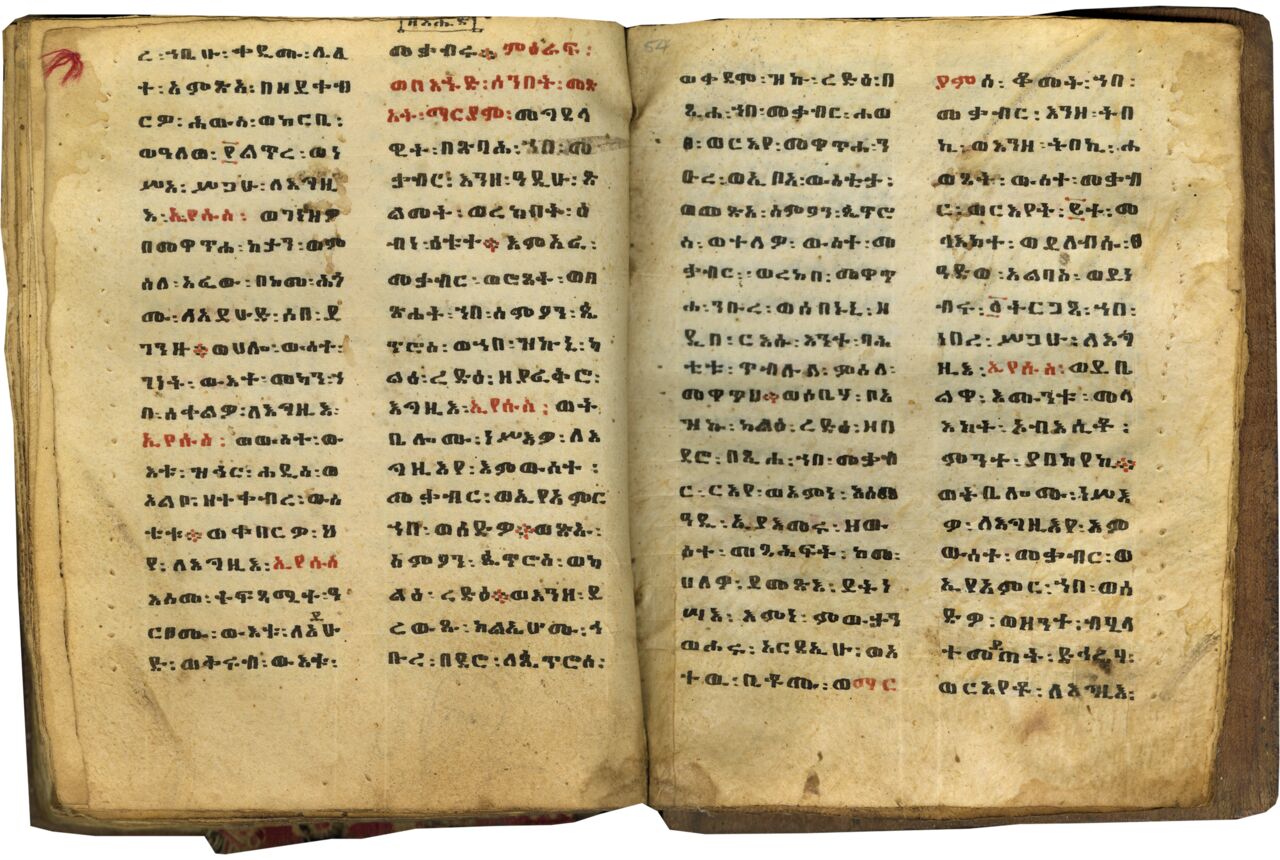 ረ፡ኀቢሁ፡ቀዲሙ፡ሌሊ
ት፡አምጽአ፡በዘይቀብ
ርዎ፡ሐውሰ፡ወከርቤ፡
ወዓለወ፡፻ልጥረ፡ወነ
ሥአ፡ሥጋሁ፡ለእግዚ
እ፡ኢየሱስ፡ ወገነዝዎ
በመዋጥሐ፡ከታን፡ወም
ስለ፡አፈው፡በከመ፡ሕጎ
ሙ፡ለአይሁድ፡ሶበ፡ይ
ገንዙ፨ወሀሎ፡ውስተ፡
ገነት፡ውእቱ፡መካን፡ኀ
በ፡ሰቀልዎ፡ለእግዚእ፡
ኢየሱስ፡ ወውስተ፡ው
እቱ፡ዝኅር፡ሐዲስ፡ወ
አልቦ፡ዘተቀብረ፡ውስ
ቴቱ፨ወቀበርዎ፡ህ
የ፡ለእግዚእ፡ኢየሱስ
እስመ፡ተፍጻሜተ፡ዓ
ርቦሙ፡ውእቱ፡ለአይሁ
ድ፡ወቅሩብ፡ውእቱ፡
ዘእሑድ
መቃብሩ፨ምዕራፍ፡
ወበእሑድ፡ሰንበት፡መጽ
አት፡ማርያም፡መግደላ
ዊት፡በጽባሕ፡ኀበ፡መ
ቃብር፡እንዘ፡ዓዲሁ፡ጽ
ልመት፡ወረከበት፡ዕ
ብነ፡ዕቱተ፨እምአፈ፡
መቃብር፡ወሮጸት፡ወበ
ጽሐት፡ኀበ፡ስምዖን፡ጴ
ጥሮስ፡ወኀበ፡ዝኩኒ፡ካ
ልዕ፡ረድዕ፡ዘያፈቅሮ፡
እግዚእ፡ኢየሱስ፡ወት
ቤሎሙ፡ነሥእዎ፡ለእ
ግዚእየ፡እምውስተ፡
መቃብር፡ወኢየአምር
ኀበ፡ወሰድዎ፨ወጽአ፡
ስምዖን፡ጴጥሮስ፡ወካ
ልዕ፡ረድዕ፨ወእንዘ፡ይ
ረውጹ፡ክልኤሆሙ፡ኅ
ቡረ፡በደሮ፡ለጴጥሮስ፡
54
ወቀደሞ፡ዝኩ፡ረድዕ፡በ
ጺሐ፡ኀበ፡መቃብር፡ሐወ
ፀ፡ወርእየ፡መዋጥሐ፡ን
ቡረ፡ወኢቦአ፡ውስቴታ፡
ወመጽአ፡ስምዖን፡ጴጥሮ
ስ፡ወተለዎ፡ውስተ፡መ
ቃብር፡ወረከበ፡መዋጥ
ሐ፡ንቡረ፡ወሰበኒኒ፡ዘ
ዲበ፡ርእሱ፡እንተ፡ባሕ
ቲቱ፡ጥብሉል፡ምስለ፡
መዋጥሀ፨ወሶቤሃ፡ቦአ
ዝኩ፡ካልዕ፡ረድዕ፡ዘበ
ደሮ፡በጺሐ፡ኀበ፡መቃብ
ር፡ርእየ፡ወአምነ፡እስመ
ዓዲ፡ኢያእመሩ፡ዘው
ዕተ፡መጻሕፍት፡ከመ፡
ሀለዎ፡ይመጽእ፡ይትነ
ሣእ፡እምነ፡ምውታን
ወሐሩ፡አርዳኢሁ፡ወአ
ተዉ፡ቤቶሙ፡ወማር
ያምሰ፡ቆመት፡ኀበ፡
መቃብር፡እንዘ፡ትበ
ኪ፡ወእንዘ፡ትበኪ፡ሐ
ወጸት፡ውስተ፡መቃብ
ር፡ወርእየት፡፪ተ፡መ
ላእክተ፡ወይለብሱ፡ፀ
ዓድወ፡አልባሰ፡ወይነ
ብሩ፡፩ትርጋጸ፡ኀበ፡
ነበረ፡ሥጋሁ፡ለእግ
ዚእ፡ኢየሱስ፡ወይቤ
ልዋ፡እሙንቱ፡መላ
እክት፡ኦብእሲቶ፡
ምንት፡ያበክየኪ፨
ወትቤሎሙ፡ነሥእ
ዎ፡ለእግዚእየ፡እም
ውስተ፡መቃብር፡ወ
ኢየአምር፡ኀበ፡ወሰ
ድዎ፡ወዘንተ፡ብሂላ
ተመይጠት፡ድኅሬሃ፡
ወርእየቶ፡ለእግዚእ፡